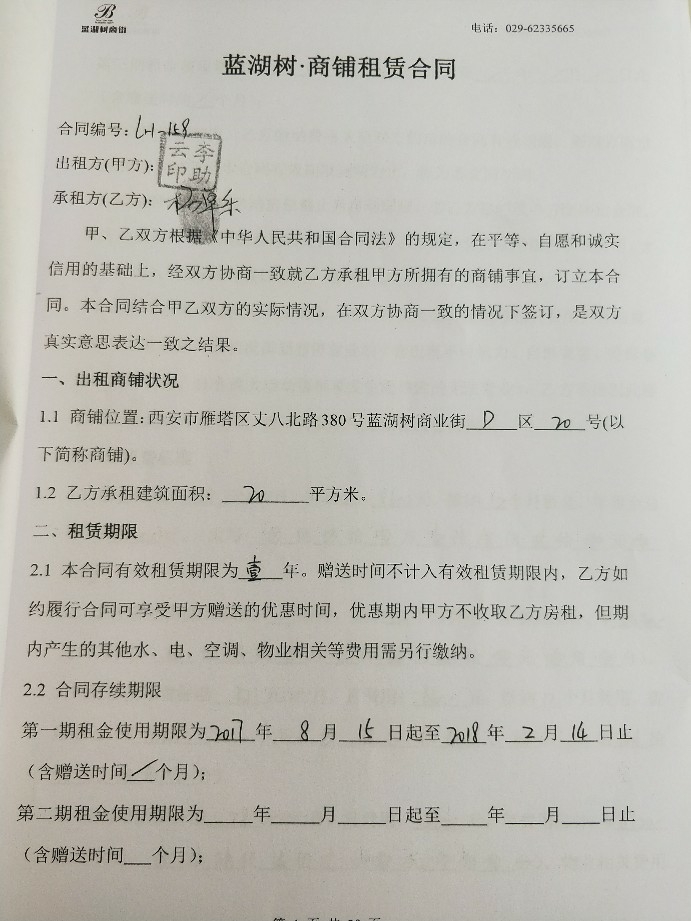 B
蓝湖树商街
电话：029-62335665
蓝湖树·商铺租赁合同
合同编号：LH-158
出租方(甲方)：
李助云印
承租方(乙方)：
甲、乙双方根据《中华人民共和国合同法》的规定，在平等、自愿和诚实
信用的基础上，经双方协商一致就乙方承租甲方所拥有的商铺事宜，订立本合
同。本合同结合甲乙双方的实际情况，在双方协商一致的情况下签订，是双方
真实意思表达一致之结果。
一、出租商铺状况
1.1 商铺位置：西安市雁塔区丈八北路380号蓝湖树商业街 D 区 20 号(以
下简称商铺)。
1.2 乙方承租建筑面积： 20 平方米。
二、租赁期限
2.1 本合同有效租赁期限为 壹 年。赠送时间不计入有效租赁期限内，乙方如
约履行合同可享受甲方赠送的优惠时间，优惠期内甲方不收取乙方房租，但期
内产生的其他水、电、空调、物业相关等费用需另行缴纳。
2.2 合同存续期限
第一期租金使用期限为 2017 年 8 月 15 日起至 2018 年 2 月 14 日止
(含赠送时间 / 个月)；
第二期租金使用期限为____年____月____日起至____年____月____日止
(含赠送时间___个月)；